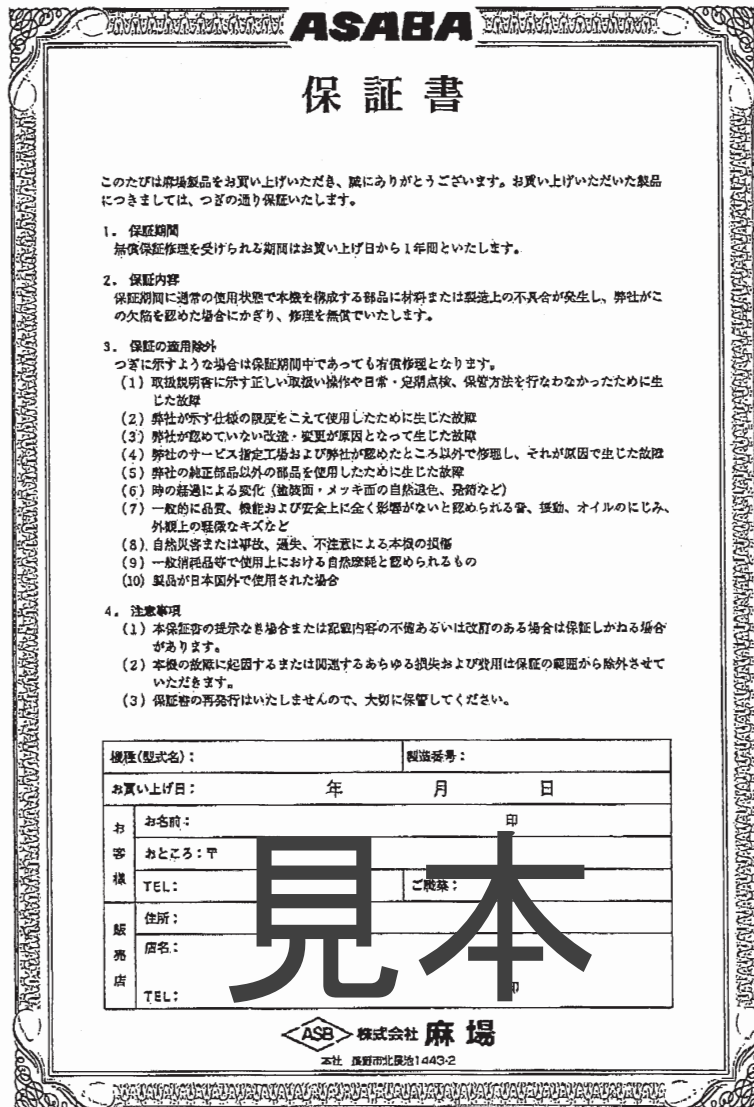 ASABA
保証書
このたびは麻場製品をお買い上げいただき、誠にありがとうございます。お買い上げいただいた製品
につきましては、つぎの通り保証いたします。
1. 保証期間
無償保証修理を受けられる期間はお買い上げ日から1年間といたします。
2. 保証内容
保証期間に通常の使用状態で本機を構成する部品に材料または製造上の不具合が発生し、弊社がこ
の欠陥を認めた場合にかぎり、修理を無償でいたします。
3. 保証の適用除外
つぎに示すような場合は保証期間中であっても有償修理となります。
(1) 取扱説明書に示す正しい取扱い操作や日常・定期点検、保管方法を行なわなかったために生
じた故障
(2) 弊社が示す仕様の限度をこえて使用したために生じた故障
(3) 弊社が認めていない改造・変更が原因となって生じた故障
(4) 弊社のサービス指定工場および弊社が認めたところ以外で修理し、それが原因で生じた故障
(5) 弊社の純正部品以外の部品を使用したために生じた故障
(6) 時の経過による変化(塗装面・メッキ面の自然退色、発錆など)
(7) 一般的に品質、機能および安全上に全く影響がないと認められる音、振動、オイルのにじみ、
外観上の軽微なキズなど
(8) 自然災害または事故、過失、不注意による本機の損傷
(9) 一般消耗品等で使用上における自然摩耗と認められるもの
(10) 製品が日本国外で使用された場合
4. 注意事項
(1) 本保証書の提示なき場合または記載内容の不備あるいは改訂のある場合は保証しかねる場合
があります。
(2) 本機の故障に起因するまたは関連するあらゆる損失および費用は保証の範囲から除外させて
いただきます。
(3) 保証書の再発行はいたしませんので、大切に保管してください。
機種(型式名): 製造番号:
お買い上げ日: 年 月 日
お客様
お名前: 印
おところ:〒
TEL: ご職業:
販売店
住所:
店名:
TEL: 印
見本
ASB 株式会社 麻場
本社 長野市北長池1443-2